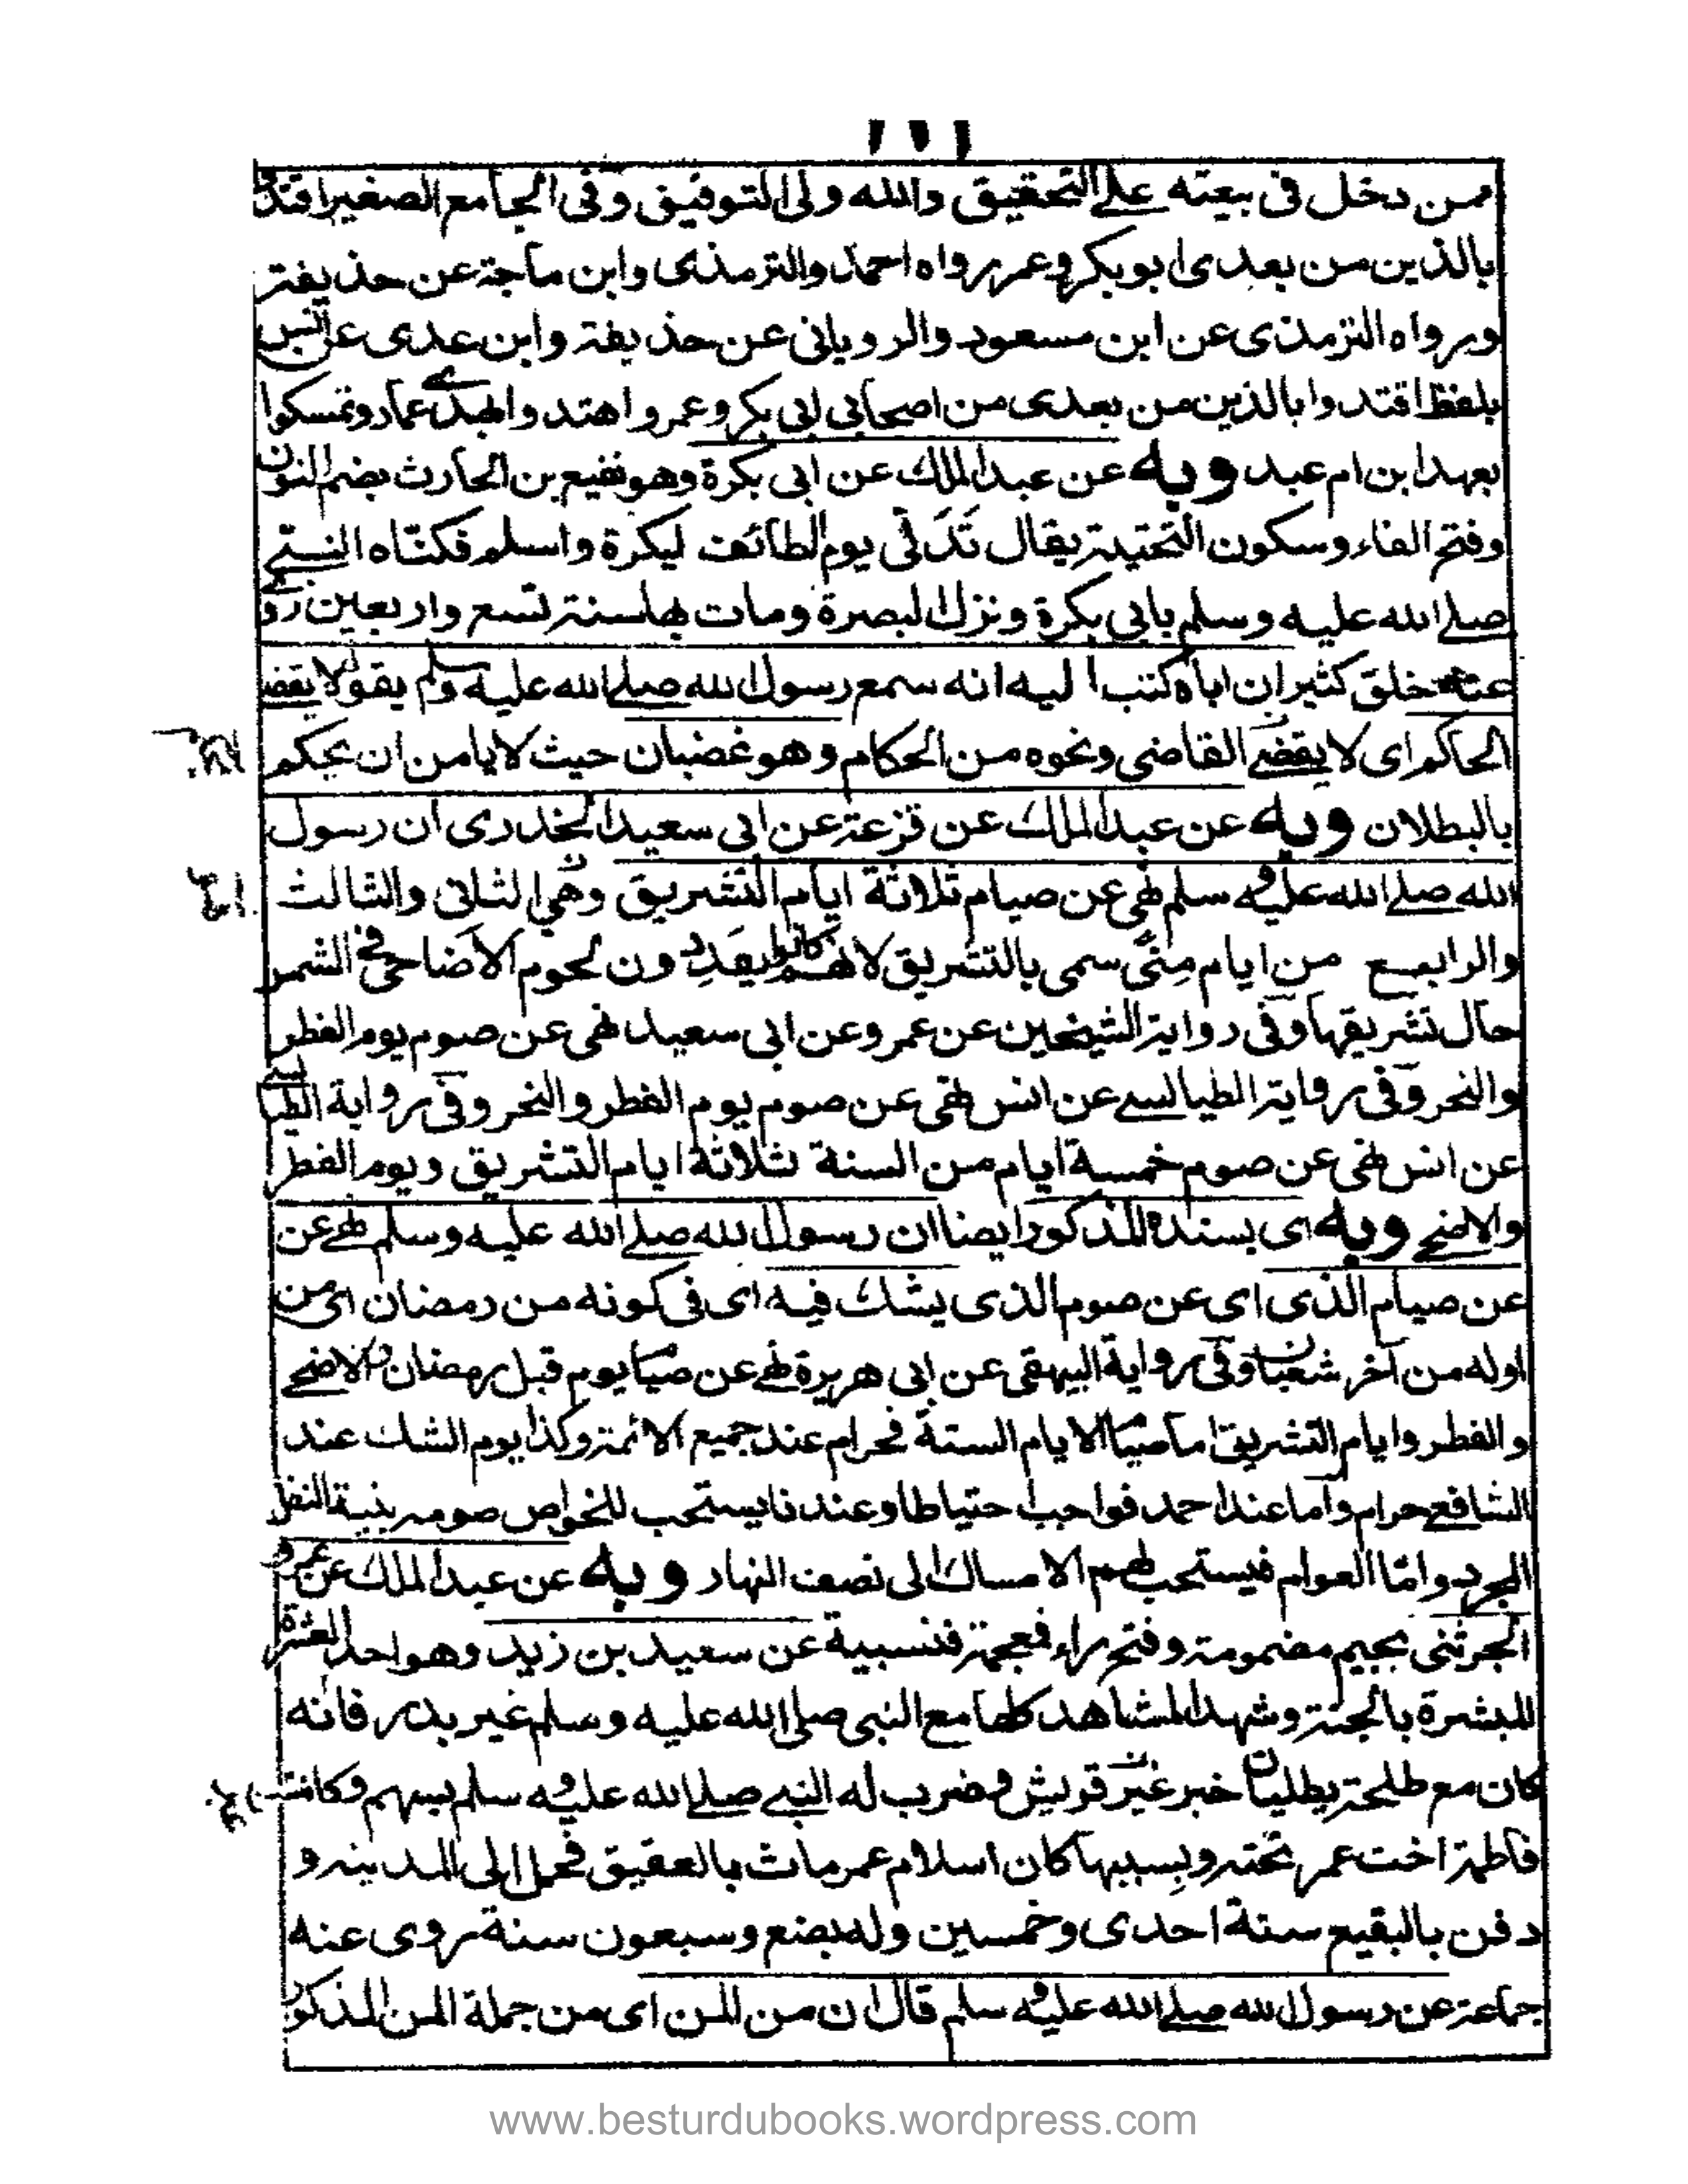 ١١١
ممن دخل في بيعته على التحقيق والله ولى التوفيق وفى الجامع الصغير اقتدوا
بالذين من بعدى ابو بكر وعمر رواه احمد والترمذى وابن ماجة عن حذيفة
ورواه الترمذى عن ابن مسعود والرويانى عن حذيفة وابن عدى عن انس
بلفظ اقتدوا بالذين من بعدى من اصحابى ابى بكر وعمر واهتدوا بهدى عمار وتمسكوا
بعهد ابن ام عبد وبه عن عبد الملك عن ابى بكرة وهو نفيع بن الحارث بضم النون
وفتح الفاء وسكون التحتية يقال تَدَلّى يوم الطائف ببكرة واسلم فكنّاه النبى
صلى الله عليه وسلم بابى بكرة ونزل البصرة ومات بها سنة تسع واربعين روى
عنه خلق كثير ان اباه كتب اليه انه سمع رسول الله صلى الله عليه وسلم يقول لا يقضى
الحاكم اى لا يقضى القاضى ونحوه من الحكام وهو غضبان حيث لا يامن ان يحكم
بالبطلان وبه عن عبد الملك عن قزعة عن ابى سعيد الخدرى ان رسول
الله صلى الله عليه وسلم نهى عن صيام ثلاثة ايام التشريق وهى الثانى والثالث
والرابع من ايام مِنًى سمى بالتشريق لانهم كانوا يقددون لحوم الاضاحى فى الشمس
حال تشريقها وفى رواية الشيخين عن عمر وعن ابى سعيد نهى عن صوم يوم الفطر
والنحر وفى رواية الطيالسى عن انس نهى عن صوم يوم الفطر والنحر وفى رواية الطيالسى
عن انس نهى عن صوم خمسة ايام من السنة ثلاثة ايام التشريق ويوم الفطر
والاضحى وبه اى بسنده المذكور ايضا ان رسول الله صلى الله عليه وسلم نهى عن
عن صيام الذى اى عن صوم الذى يشك فيه اى فى كونه من رمضان اى من
اوله من آخر شعبان وفى رواية البيهقى عن ابى هريرة نهى عن صيام يوم قبل رمضان والاضحى
والفطر وايام التشريق اما صيام الايام الستة فحرام عند جميع الائمة وكذا يوم الشك عند
الشافعى حرام واما عند احمد فواجب احتياطا وعندنا يستحب للخواص صومه بنية النفل
المجرد وامّا العوام فيستحب لهم الامساك الى نصف النهار وبه عن عبد الملك عن عمرو
الجرشى بجيم مضمومة وفتح راء فمعجمة فنسبية عن سعيد بن زيد وهو احد العشرة
المبشرة بالجنة وشهد المشاهد كلها مع النبى صلى الله عليه وسلم غير بدر فانه
كان مع طلحة يطلبان خبر غير قريش وضرب له النبى صلى الله عليه وسلم بسهم وكانت
فاطمة اخت عمر تحته وبسببها كان اسلام عمر مات بالعقيق فحمل الى المدينه و
دفن بالبقيع سنة احدى وخمسين وله بضع وسبعون سنة روى عنه
جماعة عن رسول الله صلى الله عليه وسلم قال ان من المن اى من جملة المن المذكور
www.besturdubooks.wordpress.com